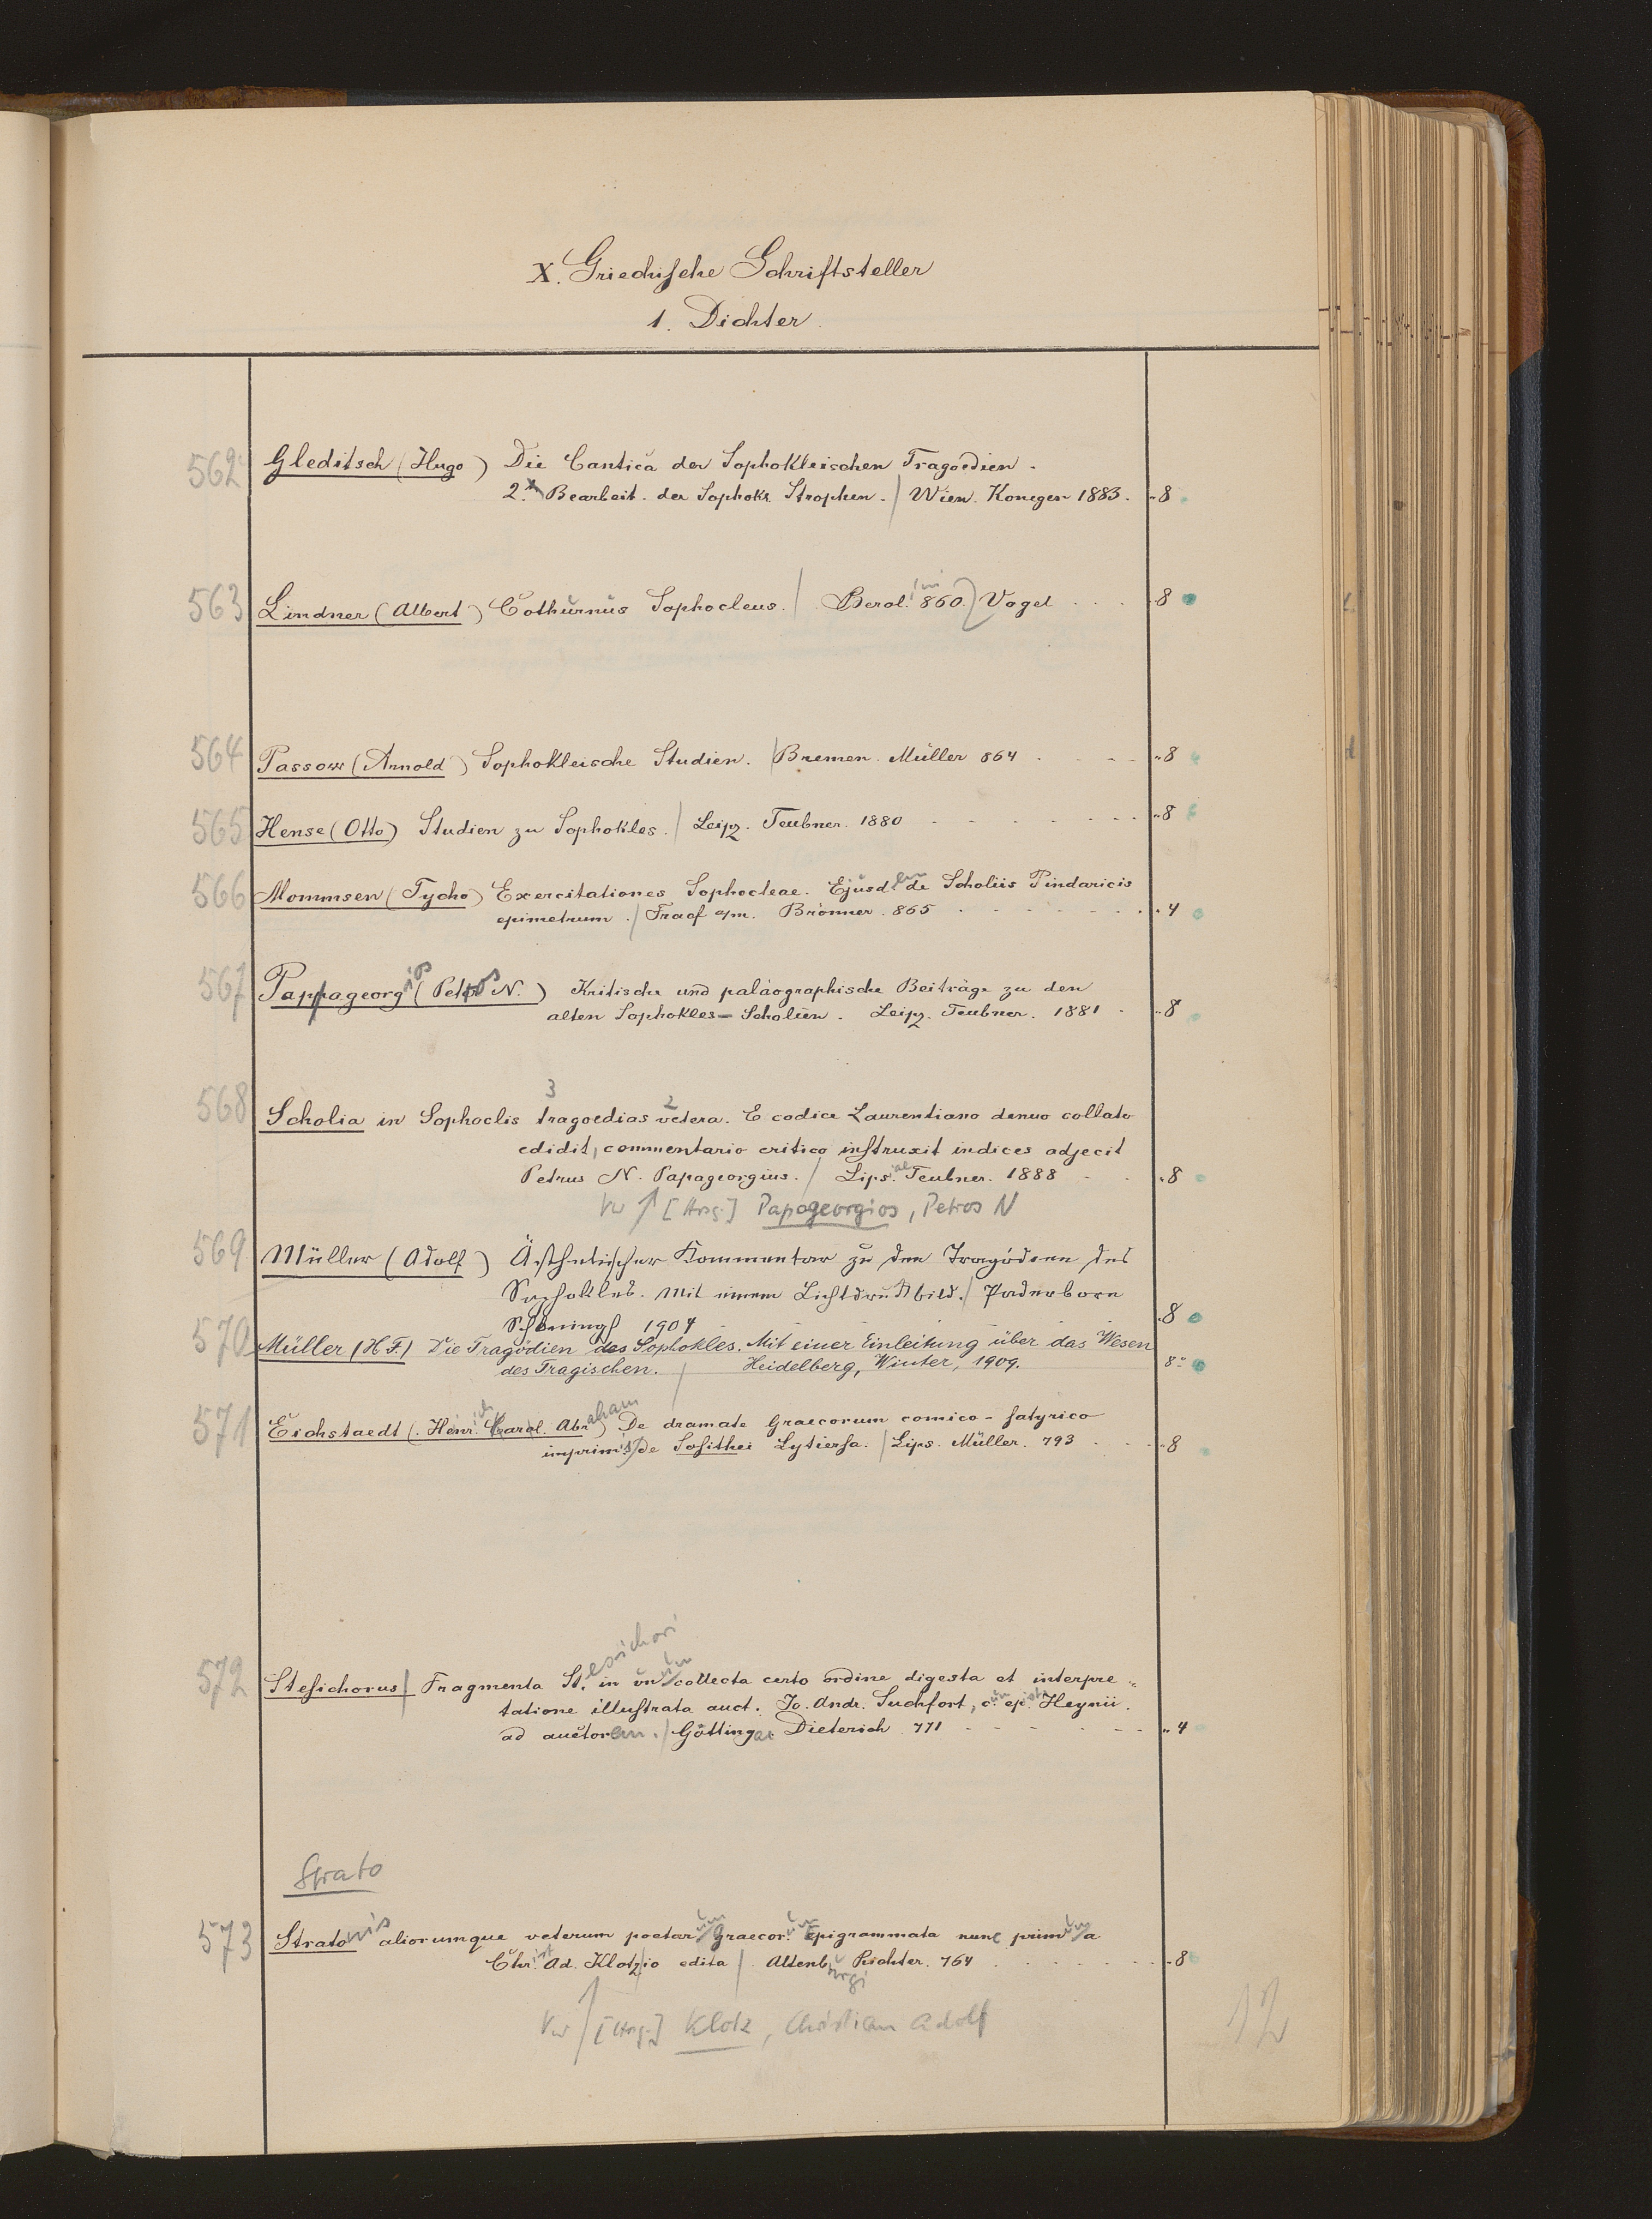 X. Griechische Schriftsteller
1. Dichter.
562 Gleditsch (Hugo) Die Cantica der Sophokleischen Tragoedien.
2. Bearbeit. der Sophokl. Strophen. / Wien. Konegen 1883. 8
563 Lindner (Albert) Cothurnus Sophocleus. / Berol. 860. Vogel 8
564 Passow (Arnold) Sophokleische Studien. / Bremen. Müller 864 8
565 Hense (Otto) Studien zu Sophokles. / Leipz. Teubner. 1880 8
566 Mommsen (Tycho) Exercitationes Sophocleae. Ejusdem de Scholiis Pindaricis
epimetrum. / Fracf a/m. Brönner. 865 4
567 Pappageorgios (Petros N.) Kritische und paläographische Beiträge zu den
alten Sophokles-Scholien. Leipz. Teubner. 1881 8
568 Scholia in Sophoclis 3 tragoedias 2 vetera. E codice Laurentiano denuo collato
edidit, commentario critico instruxit indices adjecit
Petrus N. Papageorgius. / Lips. Teubner. 1888 8
Vw ↑ [Hrsg.] Papageorgios, Petros N
569 Müller (Adolf) Ästhetischer Kommentar zu den Tragödien des
Sophokles. Mit einem Lichtdruckbild. / Paderborn
Schöningh 1904 8
570 Müller (H F.) Die Tragödien des Sophokles. Mit einer Einleitung über das Wesen
des Tragischen. / Heidelberg, Winter, 1909. 8°
571 Eichstaedt (Henrich Carol. Abraham) De dramate Graecorum comico-satyrico
imprimis de Sosithei Lytiersa. / Lips. Müller. 793 8
572 Stesichorus / Fragmenta Stesichori in unum collecta certo ordine digesta et interpre-
tatione illustrata auct. Jo. Andr. Suchfort, c. epist. Heynii.
ad auctorem. / Göttingae Dieterich 771 4
Strato
573 Stratonis aliorumque veterum poetarum Graecorum Epigrammata nunc primum a
Christ. Ad. Klotzio edita / Altenburgi Richter. 764 8
Vw ↑ [Hrsg.] Klotz, Christian Adolf
12